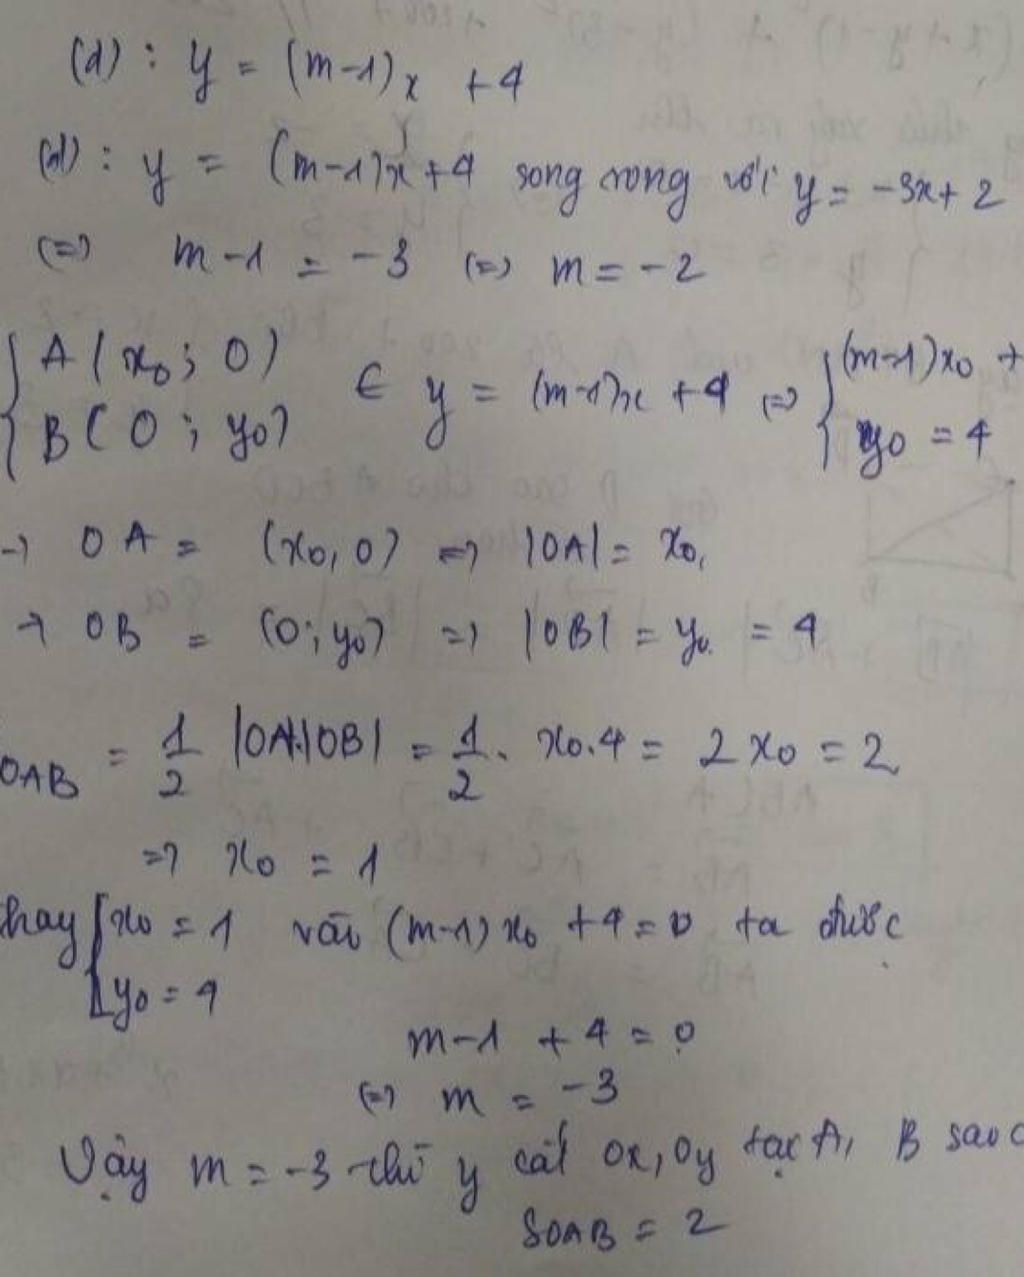 (d) : y = (m-1)x + 4
(d) : y = (m-1)x + 4 song song với y = -3x + 2
(=) m - 1 = -3 (=) m = -2
{ A ( x₀ ; 0 )
B ( 0 ; y₀ ) ∈ y = (m-1)x + 4 => { (m-1)x₀ +
y₀ = 4
→ OA = (x₀, 0) => |OA| = x₀,
→ OB = (0; y₀) => |OB| = y₀ = 4
OAB = 1/2 |OA|.|OB| = 1/2 . x₀.4 = 2x₀ = 2
=> x₀ = 1
thay { x₀ = 1 vào (m-1)x₀ + 4 = 0 ta được
y₀ = 4
m - 1 + 4 = 0
(=) m = -3
Vậy m = -3 thì y cắt Ox, Oy tại A, B sao c
SOAB = 2